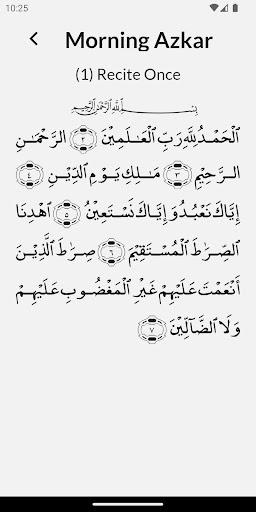 10:25
Morning Azkar
(1) Recite Once
بِسْمِ ٱللَّهِ ٱلرَّحْمَـٰنِ ٱلرَّحِيمِ
ٱلْحَمْدُ لِلَّهِ رَبِّ ٱلْعَـٰلَمِينَ ٢ ٱلرَّحْمَـٰنِ
ٱلرَّحِيمِ ٣ مَـٰلِكِ يَوْمِ ٱلدِّينِ ٤
إِيَّاكَ نَعْبُدُ وَإِيَّاكَ نَسْتَعِينُ ٥ ٱهْدِنَا
ٱلصِّرَٰطَ ٱلْمُسْتَقِيمَ ٦ صِرَٰطَ ٱلَّذِينَ
أَنْعَمْتَ عَلَيْهِمْ غَيْرِ ٱلْمَغْضُوبِ عَلَيْهِمْ
وَلَا ٱلضَّآلِّينَ ٧